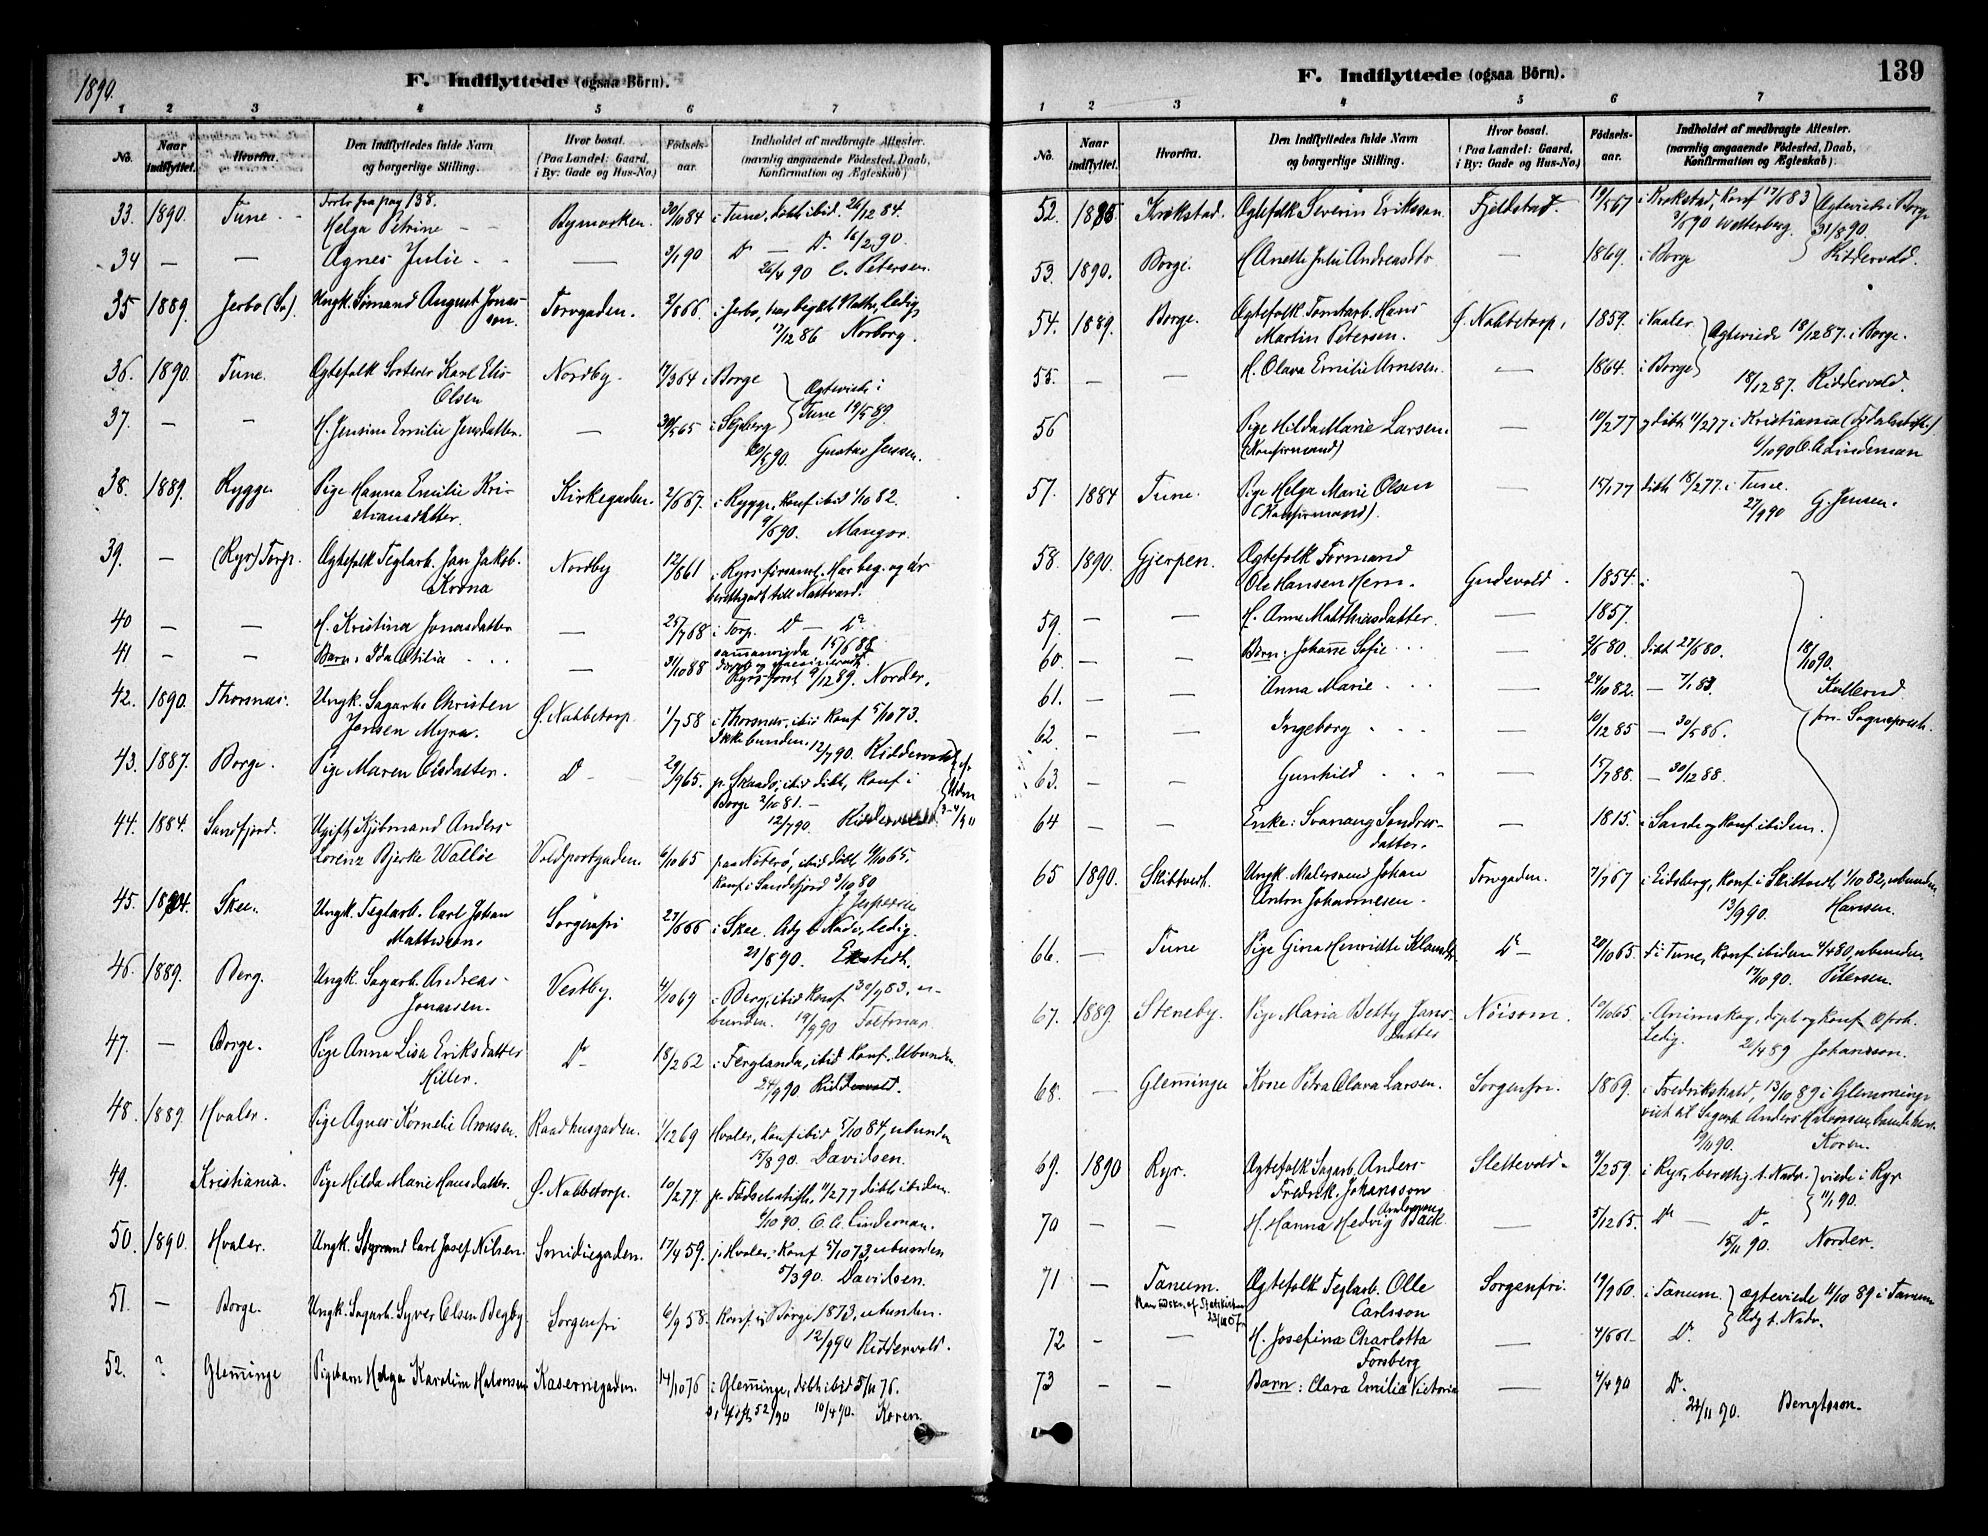 1890.
F. Indflyttede (ogsaa Börn).
1 2 3 4 5 6 7
No. Naar indflyttet. Hvorfra. Den Indflyttedes fulde Navn og borgerlige Stilling. Hvor bosat. (Paa Landet: Gaard, i By: Gade og Hus-No.) Födselsaar. Indholdet af medbragte Attester. (navnlig angaaende Födested, Daab, Konfirmation og Ægteskab)
Forts fra pag 138.
33. 1890. Tune. Helga Petrine Bymarken. 30/10 84 i Tune, døbt ibid. 26/12 84.
34 — — Agnes Julie — 3/1 90 Do — Do 16/2 90.
26/4 90 C. Petersen.
35 1889. Jerbo (Sv). Ungk. Sømand August Jonas-
son. Torvgaden. 2/8 66 i Jerbo, har begått Nattv., ledig
17/12 86 Norborg.
36. 1890. Tune. Ægtefolk Sorterer Karl Elis
Olsen Nordby. 7/3 64 i Borge Ægteviede i
Tune 19/5 89.
37. — — H. Jensine Emilie Jensdatter. — 30/5 65 i Skjeberg
20/5 90. Gustav Jensen.
38. 1889. Rygge. Pige Hanna Emilie Kri-
stiansdatter. Kirkegaden. 2/6 67. i Rygge, konf ibid 1/10 82.
9/6 90. Mangor.
39. — (Ryr) Torp. Ægtefolk Teglarb. Jan Jakob.
Krona Nordby 12/8 61 i Ryrs församl. Har beg. og är
berettigadt till Nattvard.
40 — — H. Kristina Jonasdatter — 25/7 68 i Torp. Do — Do
sammanvigda 15/6 88
41 — — Barn: Ida Otilia — 31/10 88
Ryrs förs 9/12 89. Norder.
42. 1890. Thorsnæs. Ungk. Sagarb. Christen
Jensen Myra. Ø. Nabbetorp. 1/7 58 i Thorsnæs, ibid Konf 5/10 73.
Ikke bunden. 12/7 90. Riddervold
43. 1887. Borge. Pige Maren Olsdatter. Do 29/9 65. p. Skaadø, ibid døbt, Konf i
Borge 2/10 81.—
12/7 90. Riddervold.
44. 1884. Sandfjord. Ugift Kjøbmand Anders
Lorenz Bjerke Walløe Voldportgaden. 6/10 65 paa Nøterø, ibid døbt
Konf i Sandefjord 3/10 80
J. Jespersen
45. Skee. Ungk. Teglarb. Carl Johan
Mattisson. Sorgenfri 27/6 66 i Skee. Adg. t. Nadv., ledig.
21/8 90. Ekstedt.
46. 1889. Berg. Ungk. Sagarb. Andreas
Jonassen. Vestby. 4/10 69 i Berg, ibid Konf 30/9 83. u-
bunden. 19/9 90
47. — Borge. Pige Anna Lisa Eriksdatter
Hiller. Do 18/2 62 i Ferglanda, ibid Konf. Ubunden.
24/9 90. Riddervold.
48. 1889. Hvaler. Pige Agnes Kornelie Arnesen. Raadhusgaden. 1/12 69 Hvaler, Konf ibid 5/10 84, ubunden
15/8 90. Davidsen.
49. Kristiania. Pige Hilda Marie Hansdatter. Ø. Nabbetorp. 10/2 77 p. Fødselsstift., 11/2 77 døbt ibidem.
6/10 90. O. A. Lindeman.
50. 1890. Hvaler. Ungk. Styrmand Carl Josef Nilsen. Smidiegaden. 17/4 59. p Hvaler. Konf 5/10 73, ubunden
5/3 90. Davidsen.
51. — Borge. Ungk. Sagarb. Syver Olsen Begby. Sorgenfri 6/9 58. Konf i Borge 1873, ubunden.
12/9 90 Riddervold.
52. ? Glem̄inge Pigebarn Helga Karoline Halvorsen Kasernegaden. 14/10 76 i Glem̄inge, døbt ibid 5/11 76.
10/4 90. Koren.
139
F. Indflyttede (ogsaa Börn).
1 2 3 4 5 6 7
No. Naar indflyttet. Hvorfra. Den Indflyttedes fulde Navn og borgerlige Stilling. Hvor bosat. (Paa Landet: Gaard, i By: Gade og Hus-No.) Födselsaar. Indholdet af medbragte Attester. (navnlig angaaende Födested, Daab, Konfirmation og Ægteskab).
52. 1885 Krokstad. Ægtefolk Severin Eriksson Fjeldstad. 19/5 67 i Krokstad, Konf 17/6 83 Ægteviede i Borge
3/5 90 Wetterberg. 31/8 90.
53. 1890. Borge. H. Anette Julie Andreasdtr — 1869. i Borge Riddervold.
54. 1889. Borge. Ægtefolk Tomtarb. Hans
Martin Petersen. Ø. Nabbetorp. 1859. i Vaaler. Ægteviede 18/12 87 i Borge.
55. — — H. Olava Emilie Arnesen. — 1864. i Borge
18/12 87. Riddervold.
56 Pige Hilda Marie Larsen.
(Konfirmand) — 10/2 77 døbt 11/2 77 i Kristiania (Fødselsstift.)
6/10 90 O. A. Lindeman
57. 1884 Tune. Pige Helga Marie Olsen
(Konfirmand). — 15/1 77 døbt 18/2 77. i Tune.
27/9 90 G. Jensen.
58. 1890. Gjerpen. Ægtefolk Formand
Ole Hansen Hem. Gudevold 1854. i
59. — — H. Anne Matthiasdatter. — 1857.
60. — — Børn: Johanne Sofie — 2/6 80. døbt 27/6 80. 18/10 90.
61. — — Anna Marie — 24/10 82. — 7/1 83. Kullerud
62 — — Ingeborg — 10/12 85 — 30/5 86. fm. Sogneprest.
63. — — Gunhild — 15/7 88. — 30/12 88.
64 — — Enke: Svanaug Sondres-
datter. — 1815. i Sande og Konf ibidem.
65 1890. Skibtvedt. Ungk. Malersvend Johan
Anton Johannesen. Torvgaden. 7/7 67 i Eidsberg, Konf. i Skibtvedt 1/10 82, ubunden
13/9 90. Hansen.
66. — Tune Pige Gina Henriette Do 20/10 65. i Tune, Konf. ibidem 4/4 80, ubunden.
17/10 90. Petersen.
67. 1889. Steneby. Pige Maria Betty Jans-
datter Nøisom. 10/10 65. i Animskog, döpt og Konf
Ledig. 21/4 89 Johansson.
68. — Gleminge Kone Petra Olava Larsen. Sorgenfri. 1869. i Fredrikshald, 13/10 89 i Glemminge
viet til Sagarb. Anders Halvorsen,
19/10 90. Koren.
69. 1890 Ryr. Ægtefolk Sagarb. Anders
Fredrik Johansson Slettevold 9/2 59. i Ryr, berettig. t. Nadv. viede i Ryr
11/1 90.
70 — — H. Hanna Hedvig Bäck — 5/12 65. Do — Do
15/11 90. Norder.
71 — Tanum. Ægtefolk Teglarb. Olle
Carlsson Sorgenfri. 19/9 60. i Tanum. Ægteviede 11/10 89 i Tanum
Adg t. Nadv.
72 — — H. Josefina Charlotta
Forsberg — 4/6 61. Do.
73 — — Barn: Clara Emilia Victoria — 4/4 90 Do.
24/11 90. Bengtsson.